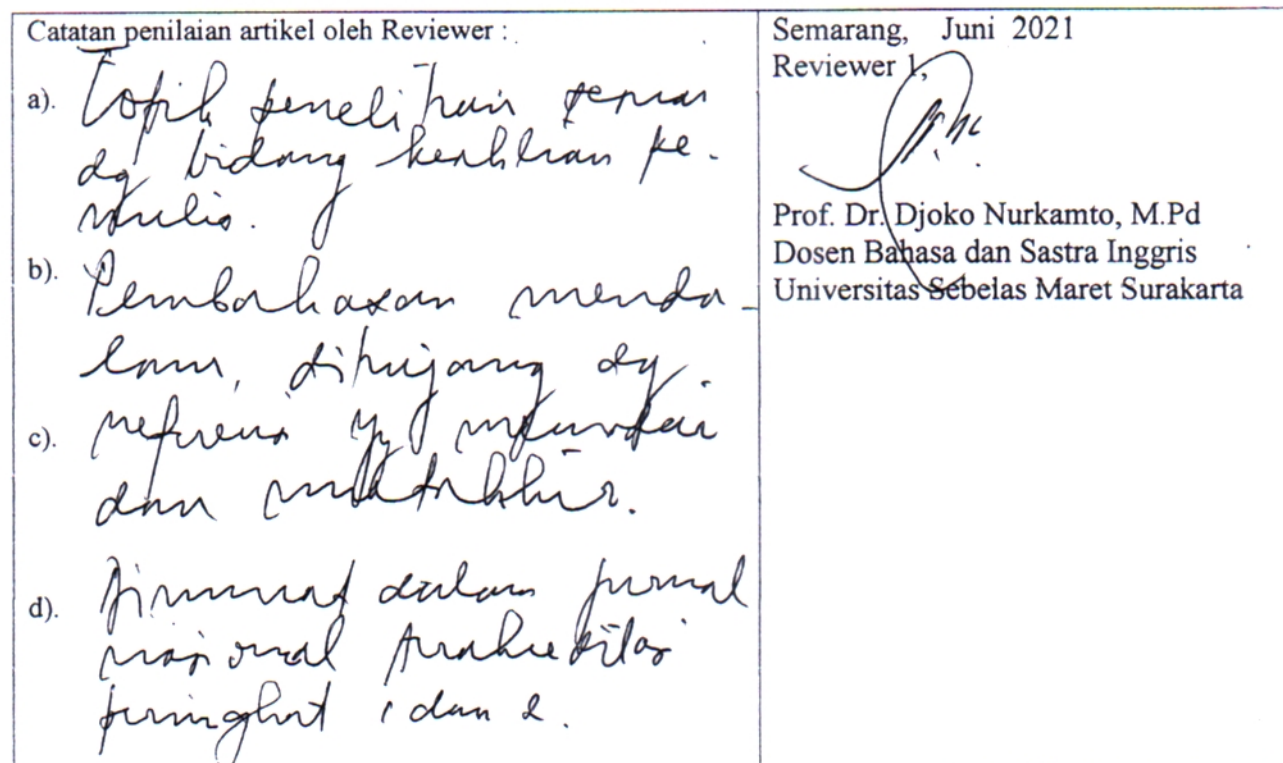 Catatan penilaian artikel oleh Reviewer :
a). Topik penelitian sesuai
dg bidang keahlian pe-
nulis.
b). Pembahasan menda-
lam, ditunjang dg
c). referensi yg memadai
dan mutakhir.
d). Dimuat dalam jurnal
nasional terakreditasi
peringkat 1 dan 2.
Semarang, Juni 2021
Reviewer 1,
Prof. Dr. Djoko Nurkamto, M.Pd
Dosen Bahasa dan Sastra Inggris
Universitas Sebelas Maret Surakarta